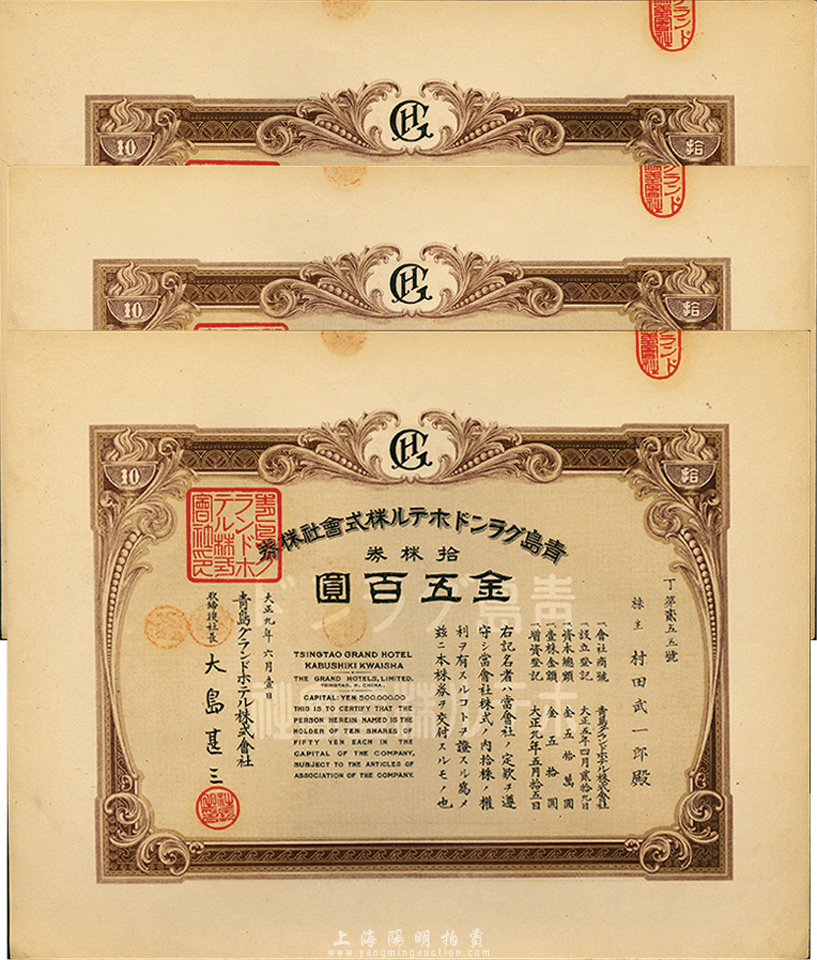 10
GH
拾
10
GH
拾
10
GH
拾
青島グランドホテル株式會社株券
拾株券
金五百圓
丁第貳五五號
株主 村田武一郎殿
一會社商號 青島グランドホテル株式會社
一設立登記 大正五年四月貳拾九日
一資本總額 金五拾萬圓
一壹株金額 金五拾圓
一增資登記 大正九年五月拾五日
右記名者ハ當會社ノ定款ヲ遵
守シ當會社株式ノ内拾株ノ權
利ヲ有スルコトヲ證スル爲メ
玆ニ本株券ヲ交付スルモノ也
TSINGTAO GRAND HOTEL
KABUSHIKI KWAISHA
THE GRAND HOTELS, LIMITED.
TSINGTAO, N. CHINA.
CAPITAL: YEN 500,000.00
THIS IS TO CERTIFY THAT THE
PERSON HEREIN NAMED IS THE
HOLDER OF TEN SHARES OF
FIFTY YEN EACH IN THE
CAPITAL OF THE COMPANY,
SUBJECT TO THE ARTICLES OF
ASSOCIATION OF THE COMPANY.
大正九年六月壹日
青島グランドホテル株式會社
取締役社長 大島甚三
青島グランドホテル株式會社印
上海陽明拍賣
www.yangmingauction.com